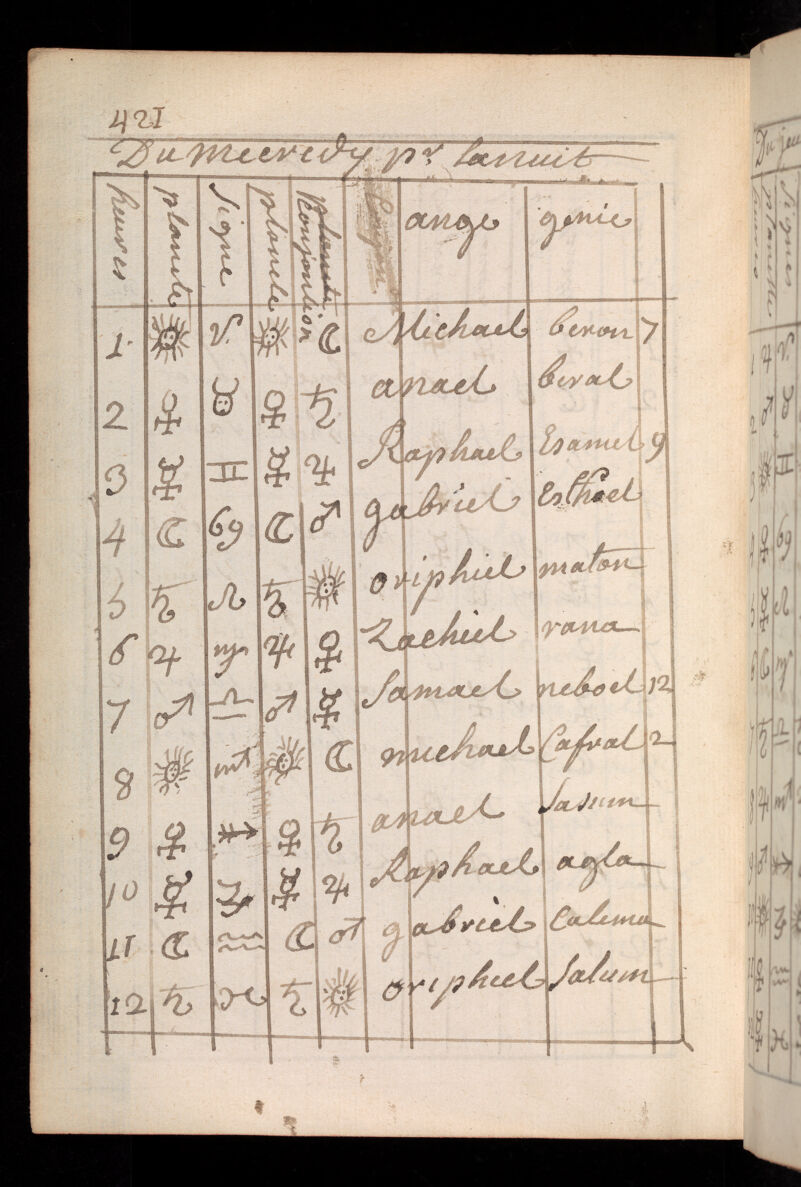 421
Du mecredy pr. lanuit
heures planete signe planete Konjontion ange genie
1 ☉ ♈ ☉ ☾ Michael beron 7
2 ♀ ♉ ♀ ♄ anael beral
3 ☿ ♊ ☿ ♃ Raphael Esamel 9
4 ☾ ♋ ☾ ♂ gabriel Esthoel
5 ♄ ♌ ♄ ☉ oriphiel maton
6 ♃ ♍ ♃ ♀ Zachiel rana
7 ♂ ♎ ♂ ☿ Samael neboel 12
8 ☉ ♏ ☉ ☾ michael Cafral 2
9 ♀ ♐ ♀ ♄ anael Sasum
10 ☿ ♑ ☿ ♃ Raphael agla
11 ☾ ♒ ☾ ♂ gabriel Calema
12 ♄ ♓ ♄ ☉ oriphiel Salum